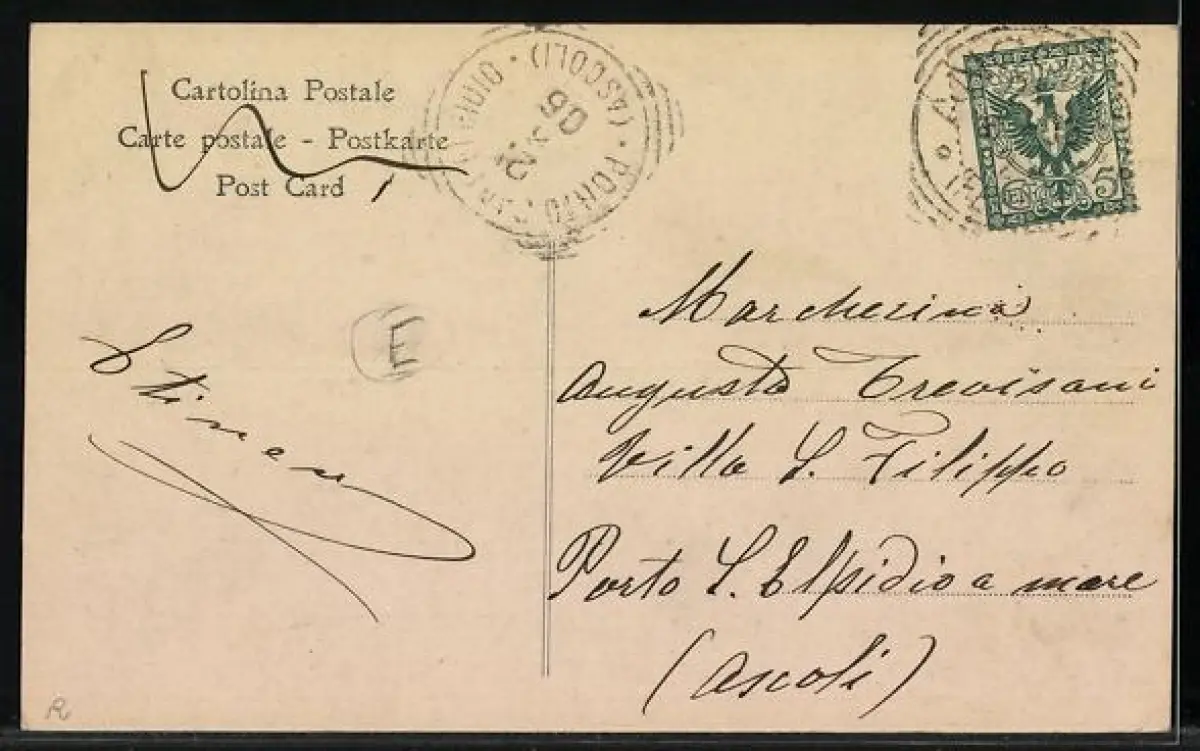 Cartolina Postale
Carte postale - Postkarte
Post Card
PORTO SANT'ELPIDIO (ASCOLI)
06
5
E
Marchesina
Augusta Trevisani
Villa S. Filippo
Porto S. Elpidio a mare
(Ascoli)
R